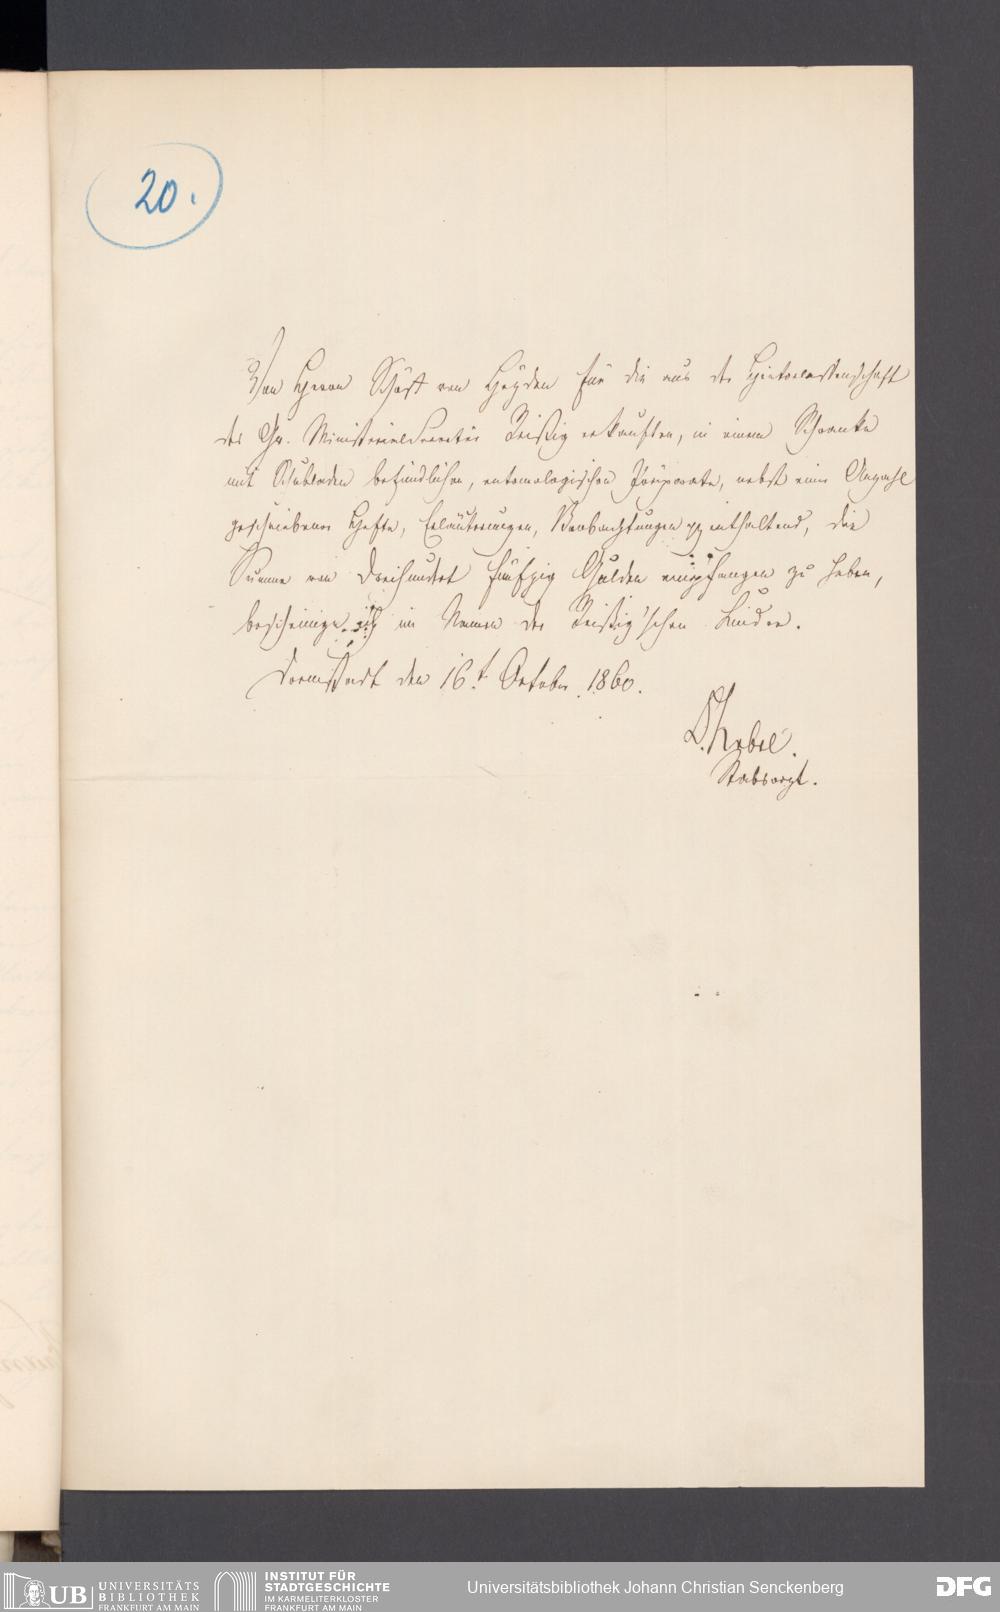 20.
Von Herrn Schöff von Heyden für die aus der Hinterlassenschaft
des Gr. Ministerialsecretär Reissig erkauften, in einem Schranke
mit Schubladen befindlichen, entomologischen Präparate, nebst einer Anzahl
geschriebener Hefte, Erläuterungen, Beobachtungen enthaltend, die
Summe von Dreihundert fünfzig Gulden empfangen zu haben,
bescheinige ich im Namen der Reissig'schen Kinder.
Darmstadt den 16t October 1860.
Dr.
Stabsarzt.
UB UNIVERSITÄTS
BIBLIOTHEK
FRANKFURT AM MAIN
INSTITUT FÜR
STADTGESCHICHTE
IM KARMELITERKLOSTER
FRANKFURT AM MAIN
Universitätsbibliothek Johann Christian Senckenberg
DFG